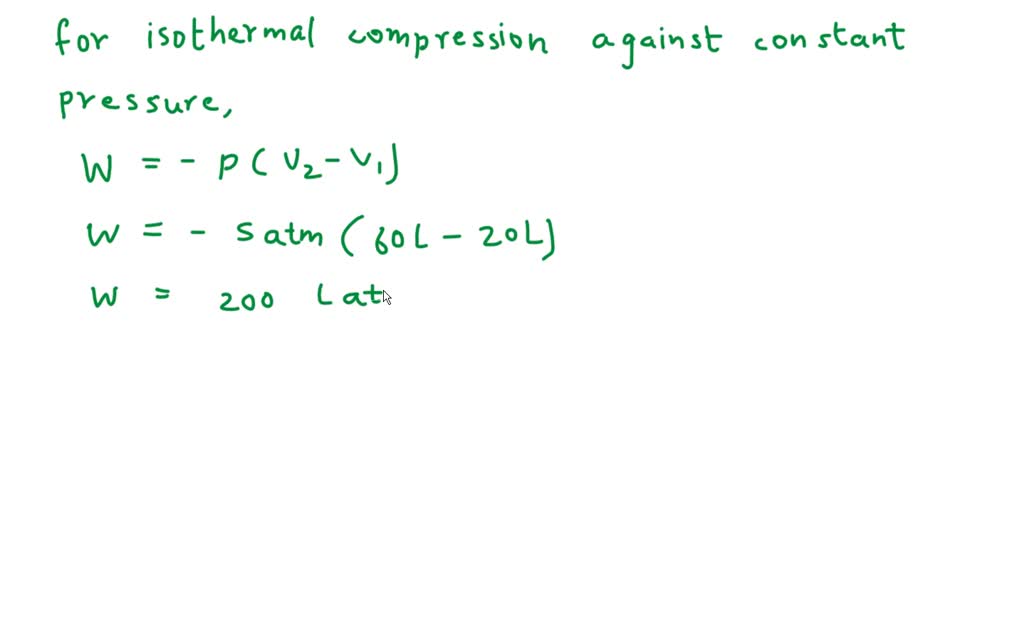 for isothermal compression against constant
pressure,
W = - P ( V₂ - V₁ )
W = - 5 atm ( 60 L - 20 L )
W = 200 L at